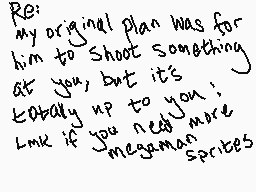 Re:
my original plan was for
him to shoot something
at you, but it's
totally up to you!
Lmk if you need more
megaman sprites